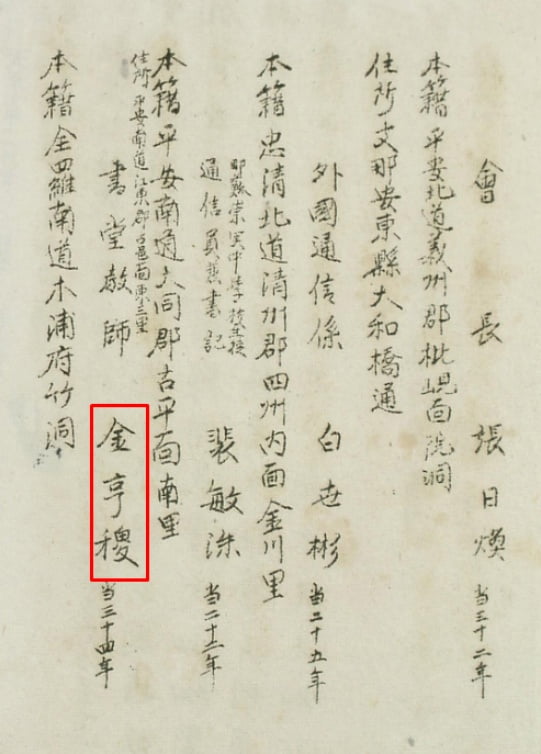 會長 張日煥 当三十二年
本籍 平安北道義州郡枇峴面院洞
住所 支那安東縣大和橋通
外國通信係 白世彬 当二十五年
本籍 忠清北道清州郡四州内面金川里
通信員兼書記 裴敏洙 当二十二年
本籍 平安南道大同郡古平面南里
住所 平安南道江東郡古邑面東三里
書堂教師 金亨稷 当三十四年
本籍 全羅南道木浦府竹洞